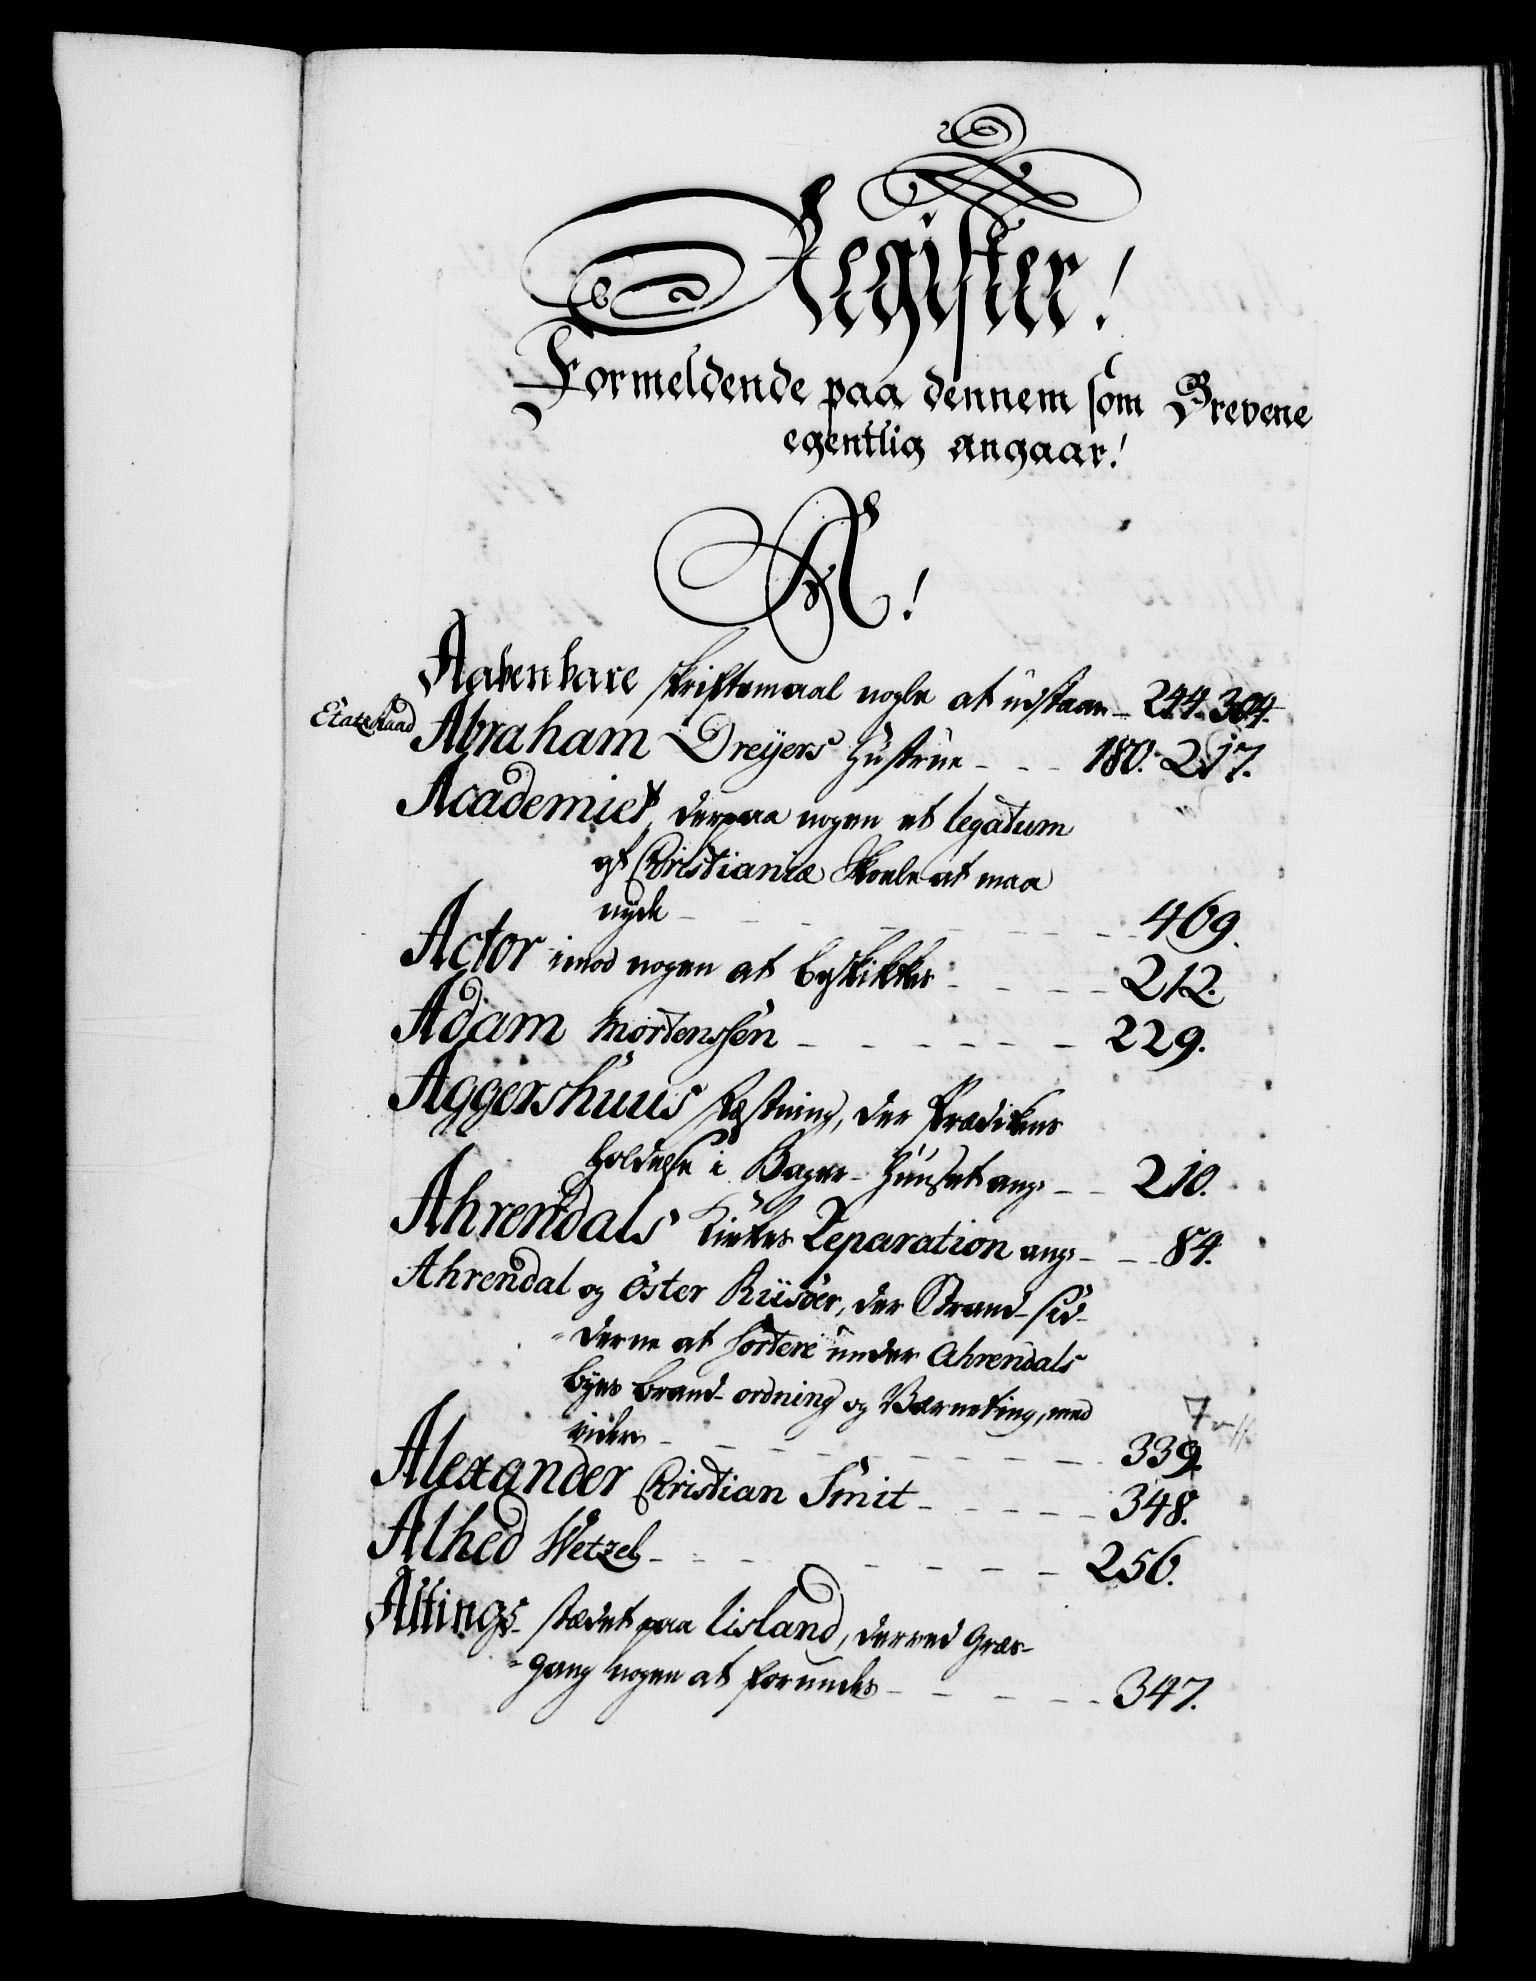 Register!
Formeldende paa dennem som Brevene
egentlig angaar!
A!
Aabenbare skriftemaal nogle at udstaae 244. 304.
Etatz Raad Abraham Dreÿers Hustrüe 180. 217.
Academiet, derpaa nogen et legatum
af Christianiæ Skoele at maa
nyde 469.
Actor imod nogen at beskikkes 212.
Adam Mortenssen 229.
Aggershuus Fæstning, der Prædikens
holdelse i Bager-Huuset ang: 210.
Ahrendals Kirkes Reparation ang: 84.
Ahrendal og Öster Riisöer, der Strand-sid-
derne at sortere under Ahrendals
byes brand-ordning og Værneting, med
videre 339.
7
Alexander Christian Smit 348.
Alhed Wetzel 256.
Altings-stædet paa Iisland, derved Græs-
gang nogen at forundes 347.